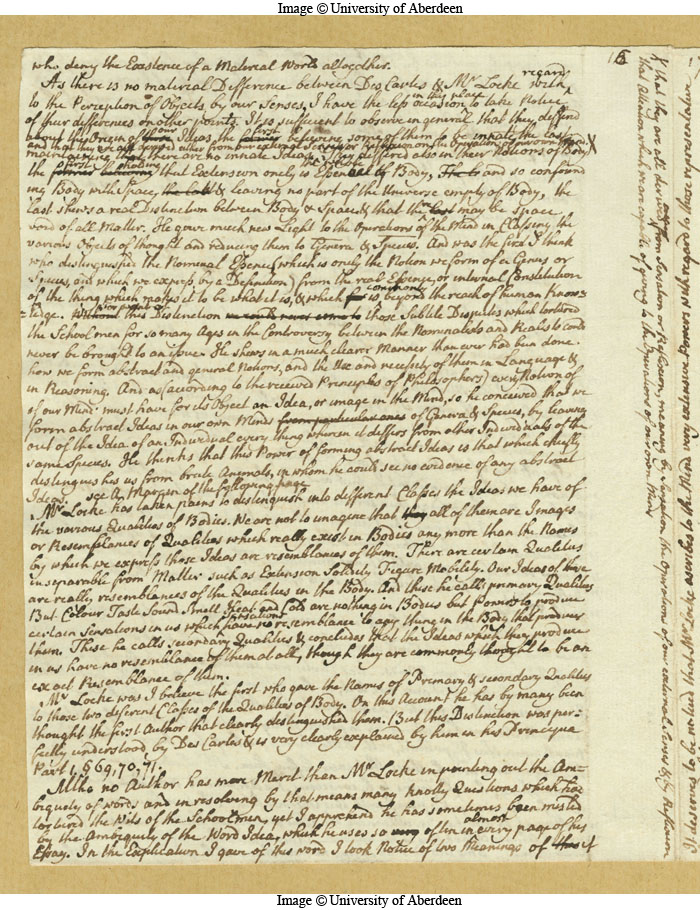 Image © University of Aberdeen
16
who deny the Existence of a Material World altogether.
As there is no material Difference between Des Cartes & Mr Locke with regard
to the Perception of Objects by our Senses, I have the less occasion to take Notice in this place
of their differences on other points. It is sufficient to observe in general that they differed
about the Origin of our Ideas, the first believing some of them to be innate the last
maintaining that there are no innate Ideas
and that they are all derived either from our external Senses or Reflexion on the Operations of our own Minds. They differed also in their Notions of Body
the first that Extension only is Essential to Body, and so confound
ing Body with Space, & leaving no part of the Universe empty of Body, the
last shews a real Distinction between Body & Space & that there may be space
void of all Matter. He gave much new Light to the Operations of the Mind in Classing the
various Objects of thought and reducing them to Genera & Species. And was the first I think
who distinguished the Nominal Essence (which is only the Notion we form of a Genus or
Species, and which we express by a Definition) from the real Essence, or internal Constitution
of the thing which makes it to be what it is, & which is, beyond the reach of human Know-
=ledge. Without this Distinction those Subtile Disputes which tortured
the Schoolmen for so many Ages in the Controversy between the Nominalists and Realists could
never be brought to an issue. He shews in a much clearer Manner than ever had been done
how we form abstract and general Notions, and the Use and necessity of them in Language &
in Reasoning. And as (according to the received Principles of Philosophers) every Notion of
of our Mind must have for its Object an Idea, or image in the Mind, so he conceived that we
form abstract Ideas in our own Minds from particular ones of Genera & Species, by leaving
out of the Idea of an Individual every thing wherein it differs from other Individuals of the
same Species. He thinks that this Power of forming abstract Ideas is that which chiefly
distinguishes us from brute Animals, in whom he could see no evidence of any abstract
Ideas. see On Margin of the following page
Mr Locke has taken pains to distinguish into different Classes the Ideas we have of
the various Qualities of Bodies. We are not to imagine that they all of them are Images
or Resemblances of Qualities which really exist in Bodies any more than the Names
by which we express those Ideas are resemblances of them. There are certain Qualities
inseparable from Matter. such as Extension Solidity Figure Mobility. Our Ideas of these
are really resemblances of the Qualities in the Body. And these he calls primary Qualities
But Colour Taste Sound Smell Heat and Cold are nothing in Bodies but Powers to produce
certain Sensations in us which sensations have no resemblance to any thing in the Body that produces
them. These he calls secondary Qualities & concludes that the Ideas which they produce
in us have no resemblance of them at all, though they are commonly thought to be an
exact Resemblance of them.
Mr Locke was I believe the first who gave the Names of Primary & secondary Qualities
to those two different Classes of the Qualities of Body. On this Account he has by many been
thought the first Author that clearly distinguished them. (But this Distinction was per-
fectly understood by Des Cartes & is very clearly explained by him in his Principia
Part 1, § 69, 70, 71.
Altho no Author has more Merit than Mr Locke in pointing out the Am-
biguity of words and in resolving by that means many knotty Questions which had
tortured the Wits of the Schoolmen, yet I apprehend he has sometimes been misled
by the Ambiguity of the Word Idea, which he uses so very often almost in every page of his
Essay. In the Explication I gave of this word I took Notice of two Meanings of it
X that they are all derived from Sensation or Reflexion, meaning by Sensation, the Operations of our external Senses & by Reflexion
that Attention which men are capable of giving to the Operations of our own Mind
Image © University of Aberdeen